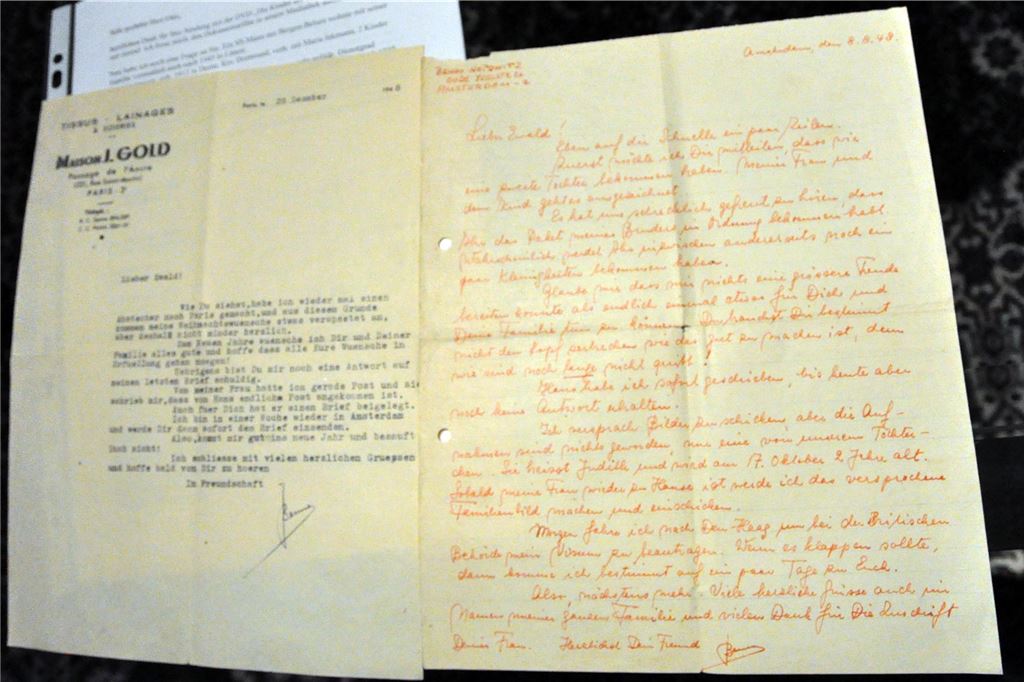 TISSUS - LAINAGES
& SOIERIES
MAISON J. GOLD
Passage de l'Ancre
PARIS-3e
Paris, le 28 Dezember 1948
Lieber Ewald!
Wie Du siehst, habe ich wieder mal einen
Abstecher nach Paris gemacht, und aus diesem Grunde
kommen meine Weihnachtswuensche etwas verspaetet an,
aber deshalb nicht minder herzlich.
Zum Neuen Jahre wuensche ich Dir und Deiner
Familie alles gute und hoffe dass alle Eure Wuensche in
Erfuellung gehen moegen!
Uebrigens bist Du mir noch eine Antwort auf
meinen letzten Brief schuldig.
Von meiner Frau hatte ich gerade Post und sie
schrieb mir, dass von Hans endlich Post angekommen ist.
Auch fuer Dich hat er einen Brief beigelegt.
Ich bin in einer Woche wieder in Amsterdam
und werde Dir dann sofort den Brief einsenden.
Also, kommt mir gut ins neue Jahr und besauft
Euch nicht!
Ich schliesse mit vielen herzlichen Gruessen
und hoffe bald von Dir zu hoeren
In Freundschaft
Benno
AMSTERDAM-Z
Amsterdam, den 8.9.48.
Lieber Ewald!
Eben auf die Schnelle ein paar Zeilen.
Zuerst möchte ich Dir mitteilen, dass wir
eine zweite Tochter bekommen haben. Meiner Frau und
dem Kind geht es ausgezeichnet.
Es hat uns schrecklich gefreut zu hören, dass
Ihr das Paket meines Bruders in Ordnung bekommen habt.
Wahrscheinlich werdet Ihr inzwischen andererseits noch ein
paar Kleinigkeiten bekommen haben.
Glaube mir dass mir nichts eine grössere Freude
bereiten konnte als endlich einmal etwas für Dich und
Deine Familie tun zu können. Du brauchst Dir bestimmt
nicht den Kopf zerbrechen wie das gut zu machen ist, denn
wir sind noch lange nicht quitt!
Hans habe ich sofort geschrieben, bis heute aber
noch keine Antwort erhalten.
Ich versprach Bilder zu schicken, aber die Auf-
nahmen sind nichts geworden, nur eine von unserem Töchter-
chen. Sie heisst Judith und wird am 17. Oktober 2 Jahre alt.
Sobald meine Frau wieder zu Hause ist werde ich das versprochene
Familienbild machen und einschicken.
Morgen fahre ich nach Den-Haag um bei der Britischen
Behörde mein Visum zu beantragen. Wenn es klappen sollte,
dann komme ich bestimmt auf ein paar Tage zu Euch.
Also, nächstens mehr. Viele herzliche Grüsse auch im
Namen meiner ganzen Familie und vielen Dank für Die Zuschrift
Deiner Frau. Herzlichst Dein Freund
Benno